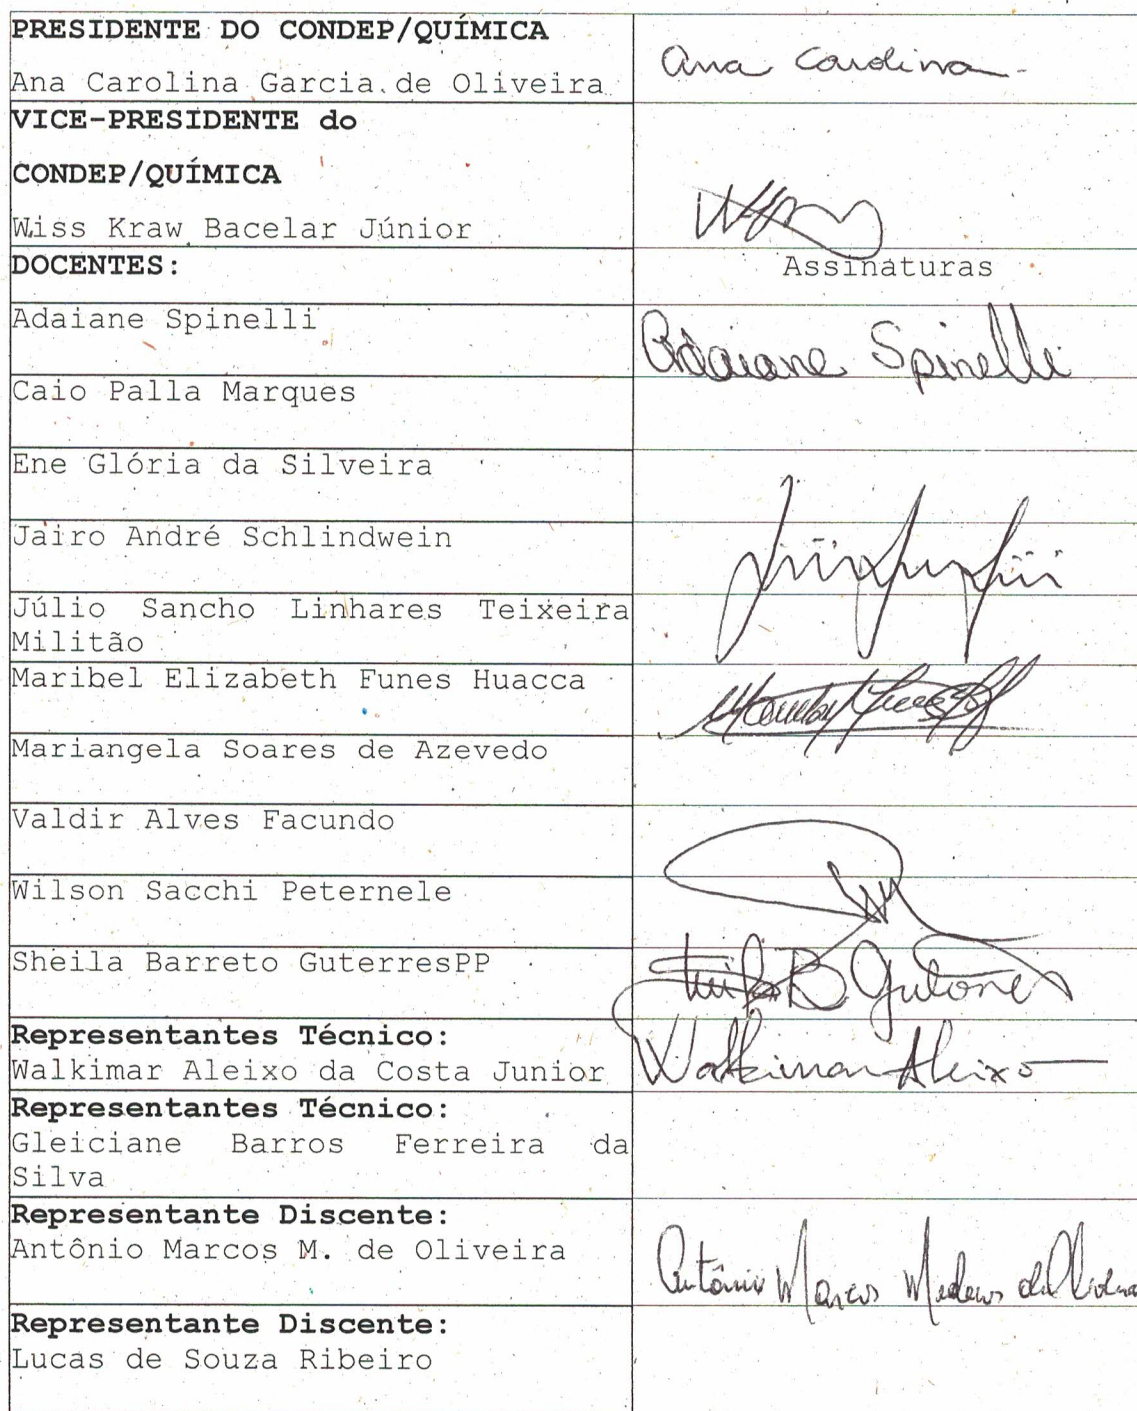 PRESIDENTE DO CONDEP/QUÍMICA
Ana Carolina Garcia de Oliveira
Ana Carolina
VICE-PRESIDENTE do
CONDEP/QUÍMICA
Wiss Kraw Bacelar Júnior
DOCENTES:
Assinaturas
Adaiane Spinelli
Adaiane Spinelli
Caio Palla Marques
Ene Glória da Silveira
Jairo André Schlindwein
Júlio Sancho Linhares Teixeira
Militão
Maribel Elizabeth Funes Huacca
Mariangela Soares de Azevedo
Valdir Alves Facundo
Wilson Sacchi Peternele
Sheila Barreto GuterresPP
Representantes Técnico:
Walkimar Aleixo da Costa Junior
Walkimar Aleixo
Representantes Técnico:
Gleiciane Barros Ferreira da
Silva
Representante Discente:
Antônio Marcos M. de Oliveira
Antônio Marcos Medeiros de Oliveira
Representante Discente:
Lucas de Souza Ribeiro